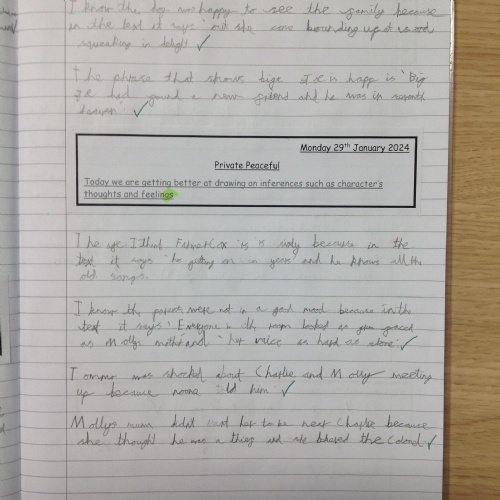 I know the dog was happy to see the family because
in the text it says ' out she came bounding up at us and
squeaking in delight
The phrase that shows bige Joe is happ is ' Big
Joe had found a new friend and he was in seventh
heaven'
Monday 29th January 2024
Private Peaceful
Today we are getting better at drawing on inferences such as character's
thoughts and feelings
The I think is is because in the
text it says ' he getting on in years' and he knows all the
old songs.
I know the were not in a good mood because in the
text it says ' Everyone in the room looked
as Mollys mother and ' her voice as hard as stone'
Tommo was shocked about Charlie and Molly meeting
up because noone told him
Mollys mum didnt want her to be near Charlie because
she thought he was a thief and she the Colonel